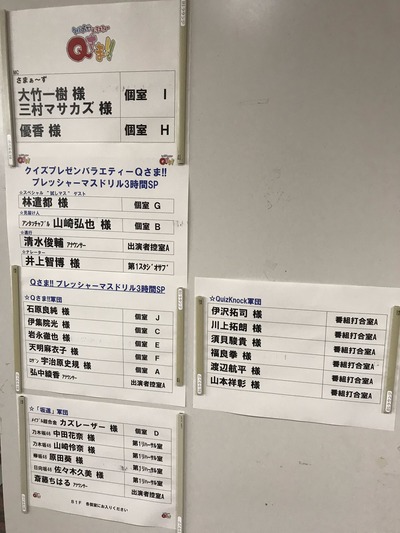 Qさま!!
MC
さまぁ〜ず
大竹一樹 様 個室 I
三村マサカズ 様
優香 様 個室 H
Qさま!!
クイズプレゼンバラエティーQさま!!
プレッシャーマスドリル3時間SP
☆スペシャル "試しマス" ゲスト
林遣都 様 個室 G
☆見届け人
アンタッチャブル 山崎弘也 様 個室 B
☆進行
清水俊輔 アナウンサー 出演者控室A
☆ナレーター
井上智博 様 第1スタジオサブ
Qさま!! プレッシャーマスドリル3時間SP
☆Qさま!!軍団
石原良純 様 個室 J
伊集院光 様 個室 C
岩永徹也 様 個室 E
天明麻衣子 様 個室 F
ロザン 宇治原史規 様 個室 A
弘中綾香 アナウンサー 出演者控室A
☆「坂道」軍団
メイプル超合金 カズレーザー 様 個室 D
乃木坂46 中田花奈 様 第1リハーサル室
乃木坂46 山崎怜奈 様 第1リハーサル室
欅坂46 原田葵 様 第1リハーサル室
日向坂46 佐々木久美 様 第1リハーサル室
斎藤ちはる アナウンサー 出演者控室A
B1F 各個室にお入りください
☆QuizKnock軍団
伊沢拓司 様 番組打合室A
川上拓朗 様 番組打合室A
須貝駿貴 様 番組打合室A
福良拳 様 番組打合室A
渡辺航平 様 番組打合室A
山本祥彰 様 番組打合室A